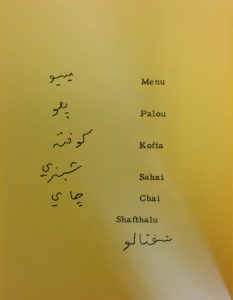 مينيو Menu
پلو Palou
كوفته Kofta
شبزي Sabzi
چاي Chai
Shafthalu
شفتالو